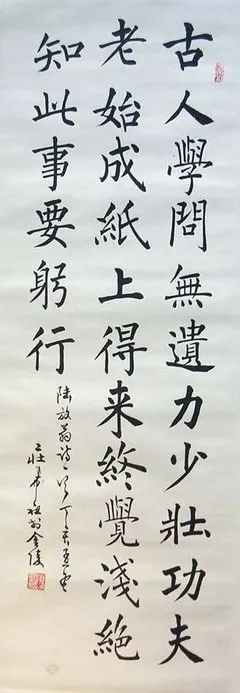 古人學問無遺力少壯功夫
老始成紙上得来終覺淺絕
知此事要躬行
陸放翁詩一首丁亥
莊希祖於金陵